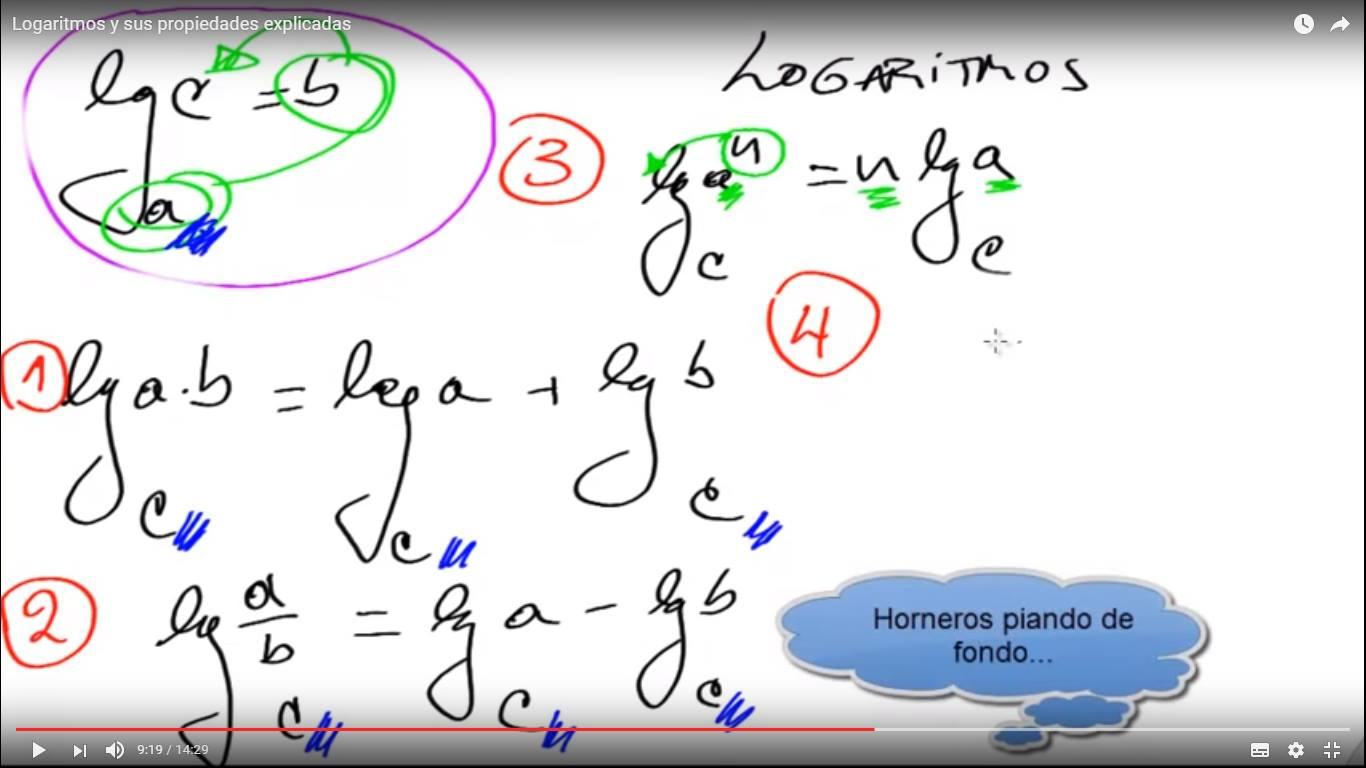 Logaritmos y sus propiedades explicadas
LOGARITMOS
lg_a c = b
③ lg_c a^n = n lg_c a
④
① lg_c a·b = log_c a + lg_c b
② lg_c a/b = lg_c a - lg_c b
Horneros piando de
fondo...
9:19 / 14:29